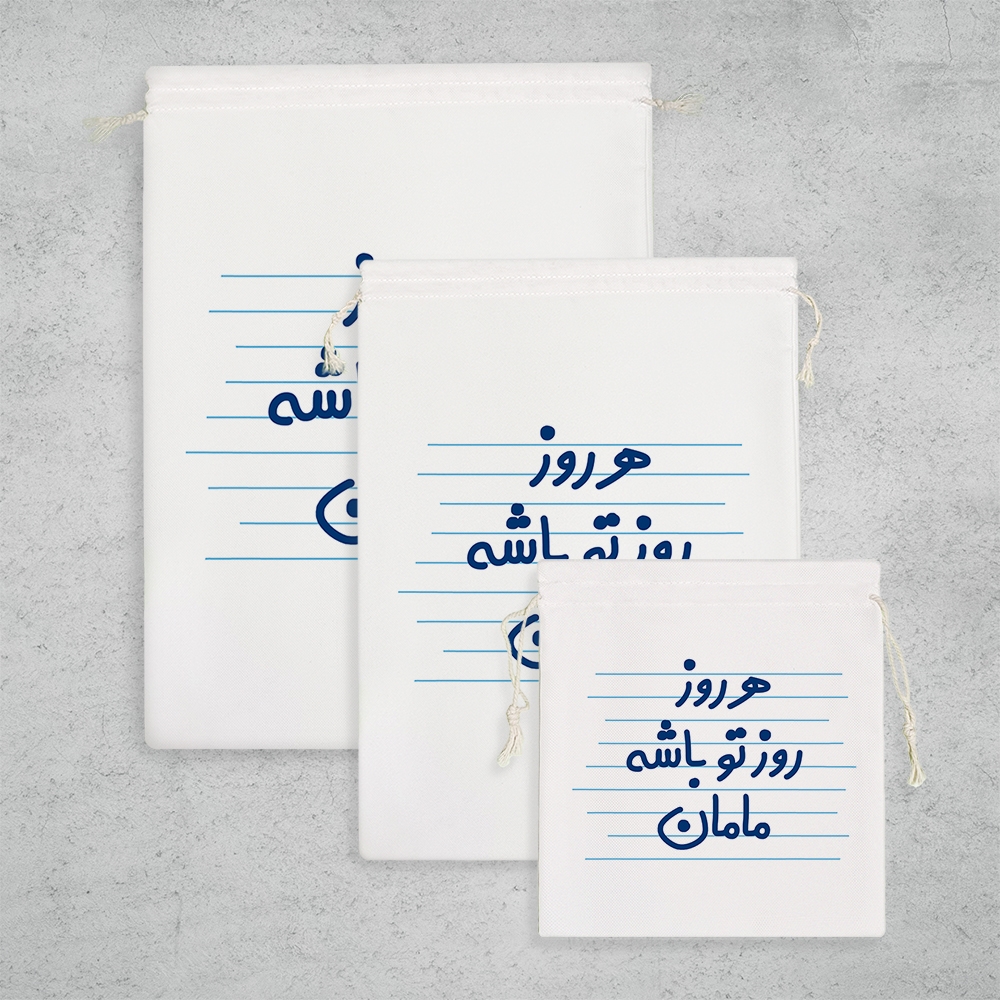 هر روز
روز تو باشه
هر روز
روز تو باشه
مامان